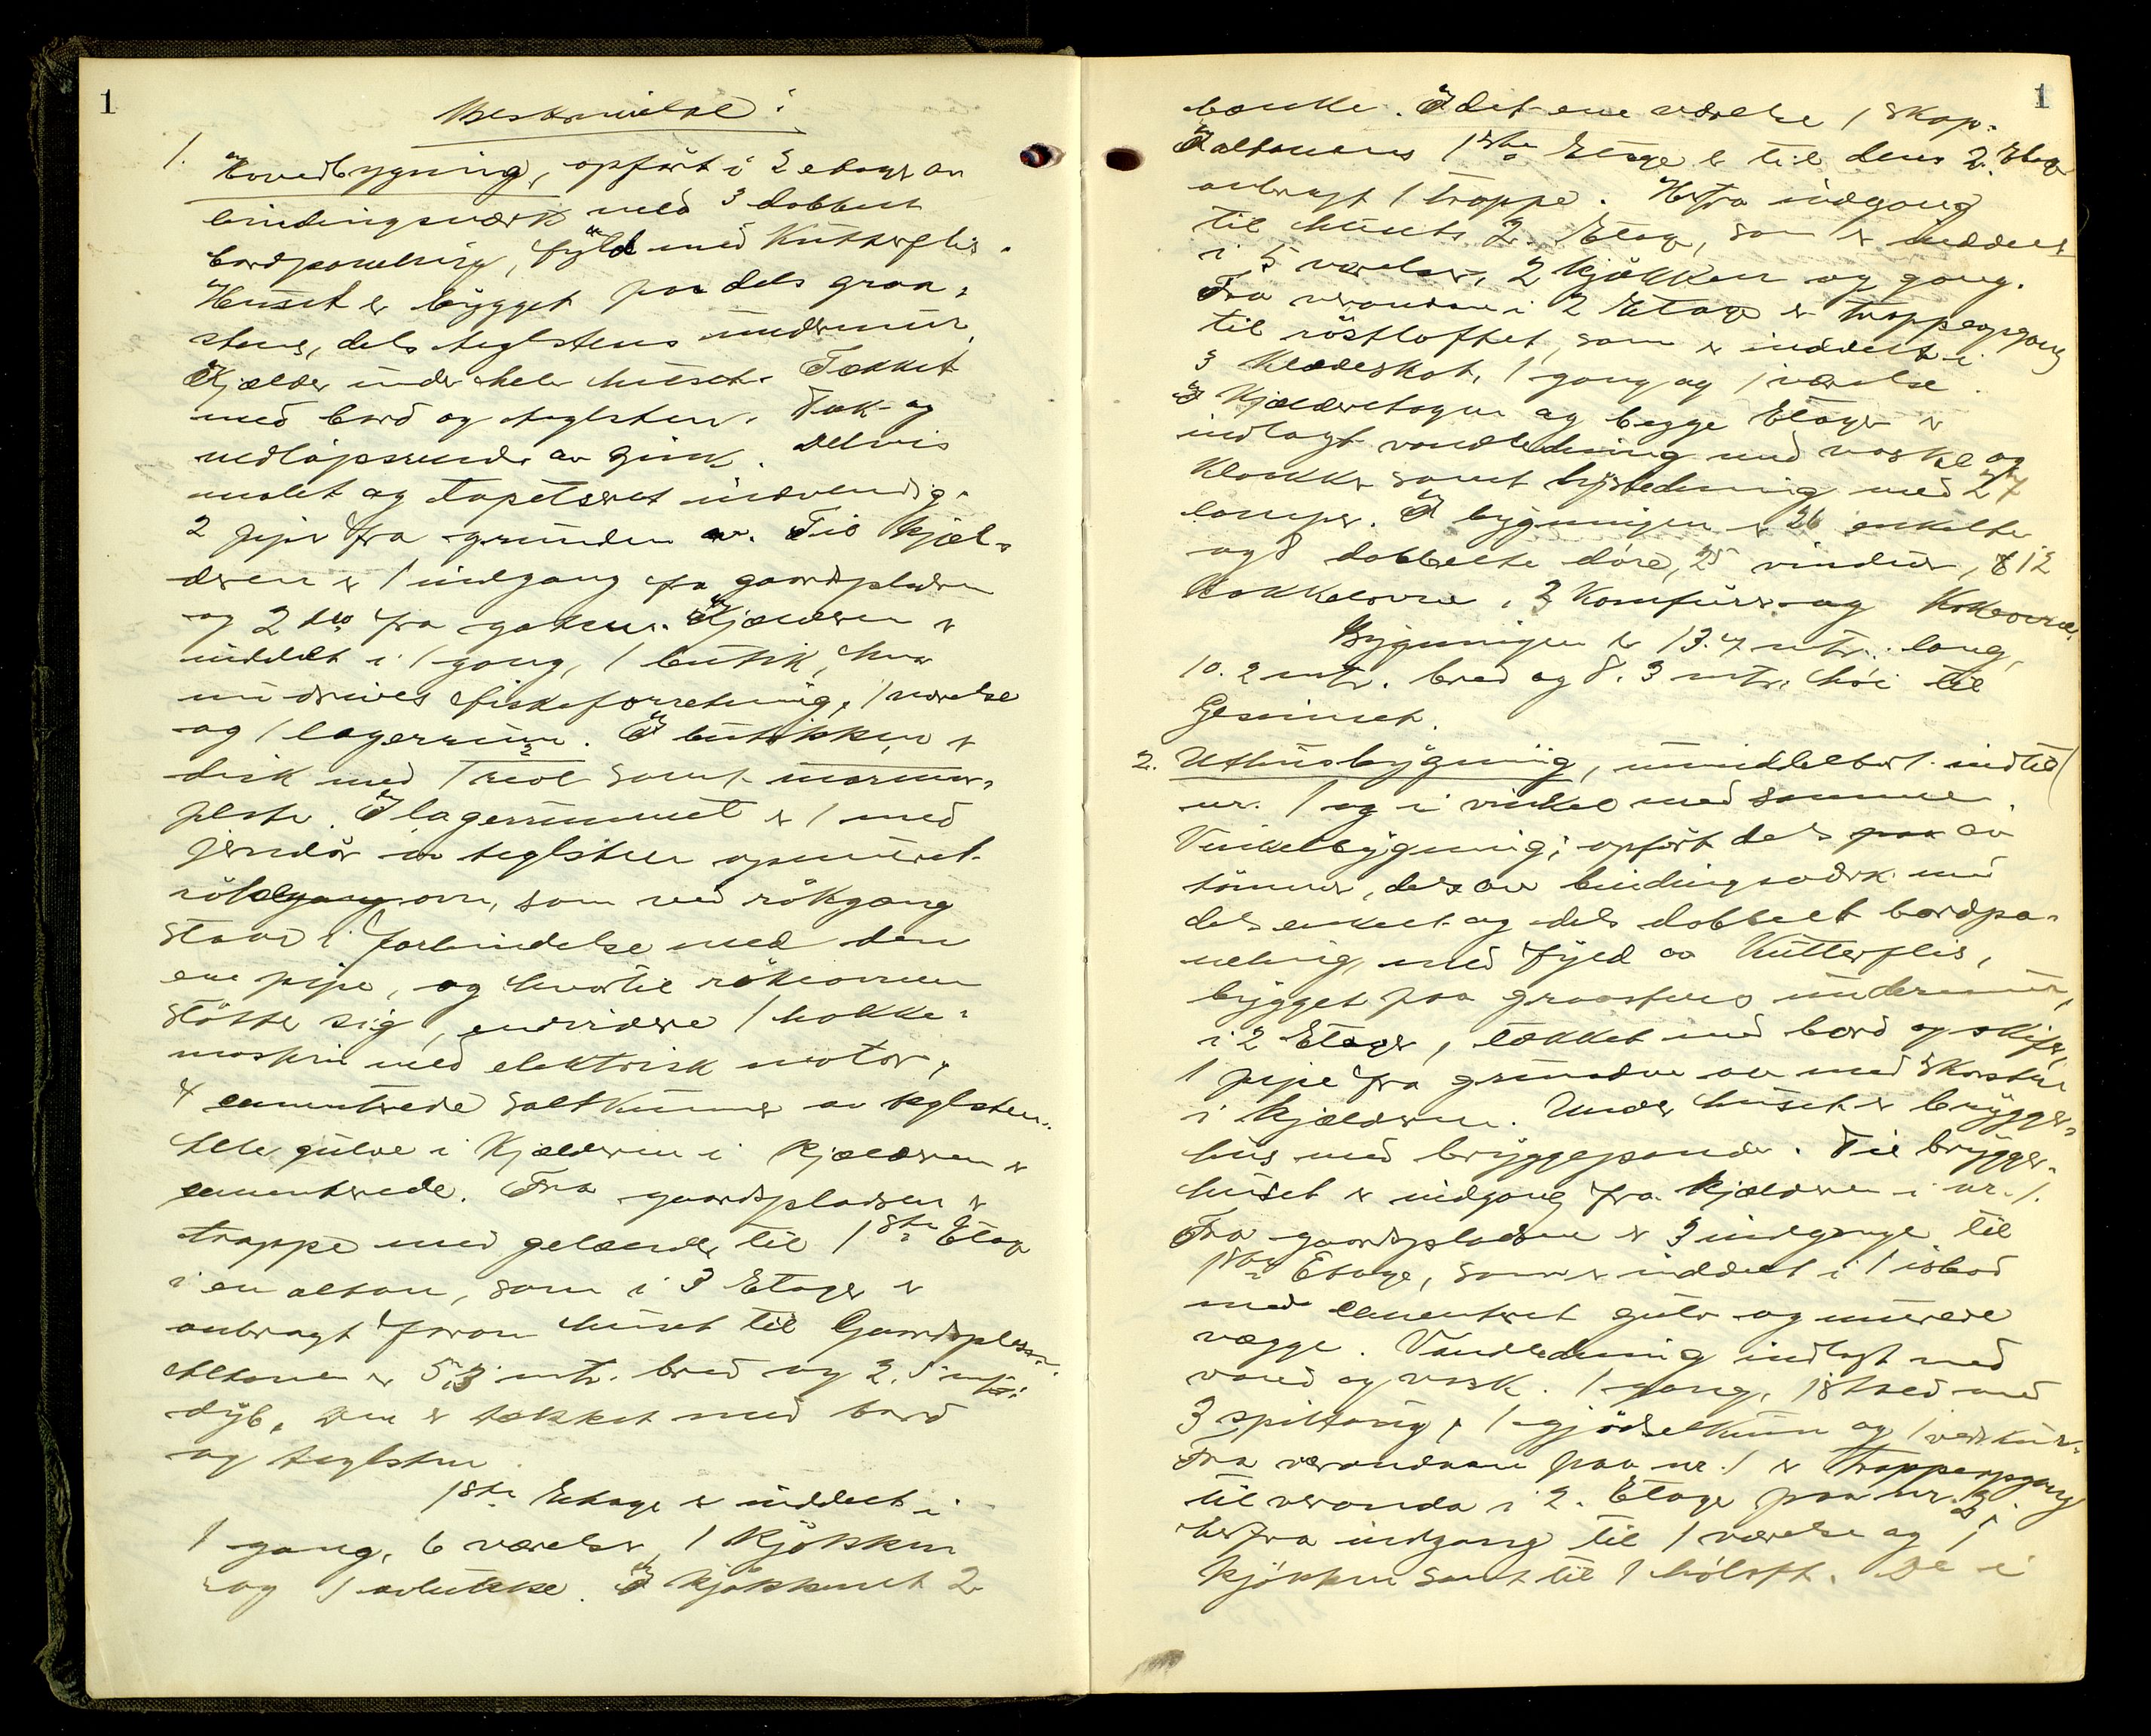 1
Beskrivelse:
1. Hovedbygning, opført i 2 etager av
bindingsværk med 3 dobbelt
bordpaneling, fyld med Kutterflis.
Huset er bygget paa dels graa-
stens, dels teglstens undermur.
Kjælder under hele huset. Tækket
med bord og teglsten. Tak- og
nedløpsrender av zink. Delvis
malet og tapetseret indvendig.
2 piper fra grunden av. Til kjæl-
deren er 1 indgang fra gaardspladsen
og 2 do fra gaten. Kjælderen er
inddelt i 1 gang, 1 butik, hvor
nu drives fiskeforretning, 1 værelse
og 1 lagerrum. I butikken er
disk med 2 reol samt marmor-
plate. I lagerrummet er 1 med
jerndør av teglsten opmuret
røkegang ovn, som ved røkgang
staar i forbindelse med den
ene pipe, og hvortil røkeovnen
støtter sig, endvidere 1 hakke-
maskin med elektrisk motor,
4 cementerede saltkummer av teglsten.
Alle gulve i Kjælderen i Kjælderen er
cementerede. Fra gaardspladsen er
trappe med gelænder til 1ste Etage
i en altan, som i 3 Etager er
anbragt foran huset til Gaardsplassen.
Altanen er 5,3 mtr. bred og 2,5 mtr.
dyb. Den er tækket med bord
og teglsten.
1ste Etage er inddelt i
1 gang, 6 værelser, 1 kjøkken
og 1 avlukke. I kjøkkenet 2
1
bænke. I det ene værelse 1 skap.
I altanens 1ste Etage er til dens 2. Etage
anbragt 1 trappe. Herfra indgang
til husets 2. Etage, som er inddelt
i 5 værelser, 2 kjøkken og gang.
Fra verandaen i 2 Etage er trappeopgang
til røstloftet, som er inddelt i
3 Klædeskot, 1 gang og 1 værelse.
I Kjælderetagen og begge Etager er
indlagt vandledning med vaske og
klosetter samt lysledning med 27
lamper. I bygningen er 26 enkelte
og 8 dobbelte døre, 25 vinduer, 12
kakkelovne, 3 Komfurer og Kokeovne.
Bygningen er 13.7 mtr. lang,
10.2 mtr. bred og 8.3 mtr. høi til
Gesimset.
2. Uthusbygning, umiddelbart indtil
nr. 1 og i vinkel med samme.
Vinkelbygning; opført dels paa av
tømmer, dels av bindingsværk med
dels enkelt og dels dobbelt bordpa-
neling, med fyld av Kutterflis,
bygget paa graastens undermur,
i 2 Etager, tækket med bord og skifer,
1 pipe fra grunden av med skorsten
i kjælderen. Under huset er brygger-
hus med bryggepande. Til brygger-
huset er indgang fra kjælderen i nr. 1.
Fra gaardspladsen er 3 indgange til
1ste Etage, som er inddelt i 1 isbod
med cementeret gulv og murede
vægge. Vandledning indlagt med
vand og vask. 1 gang, 1 stald med
3 spiltaug, 1 gjødselkum og 1 vedskur.
Fra verandaen paa nr. 1 er Trappeopgang
til veranda i 2. Etage paa nr. 2;
herfra indgang til 1 værelse og 1
kjøkken samt til 1 høloft. De i